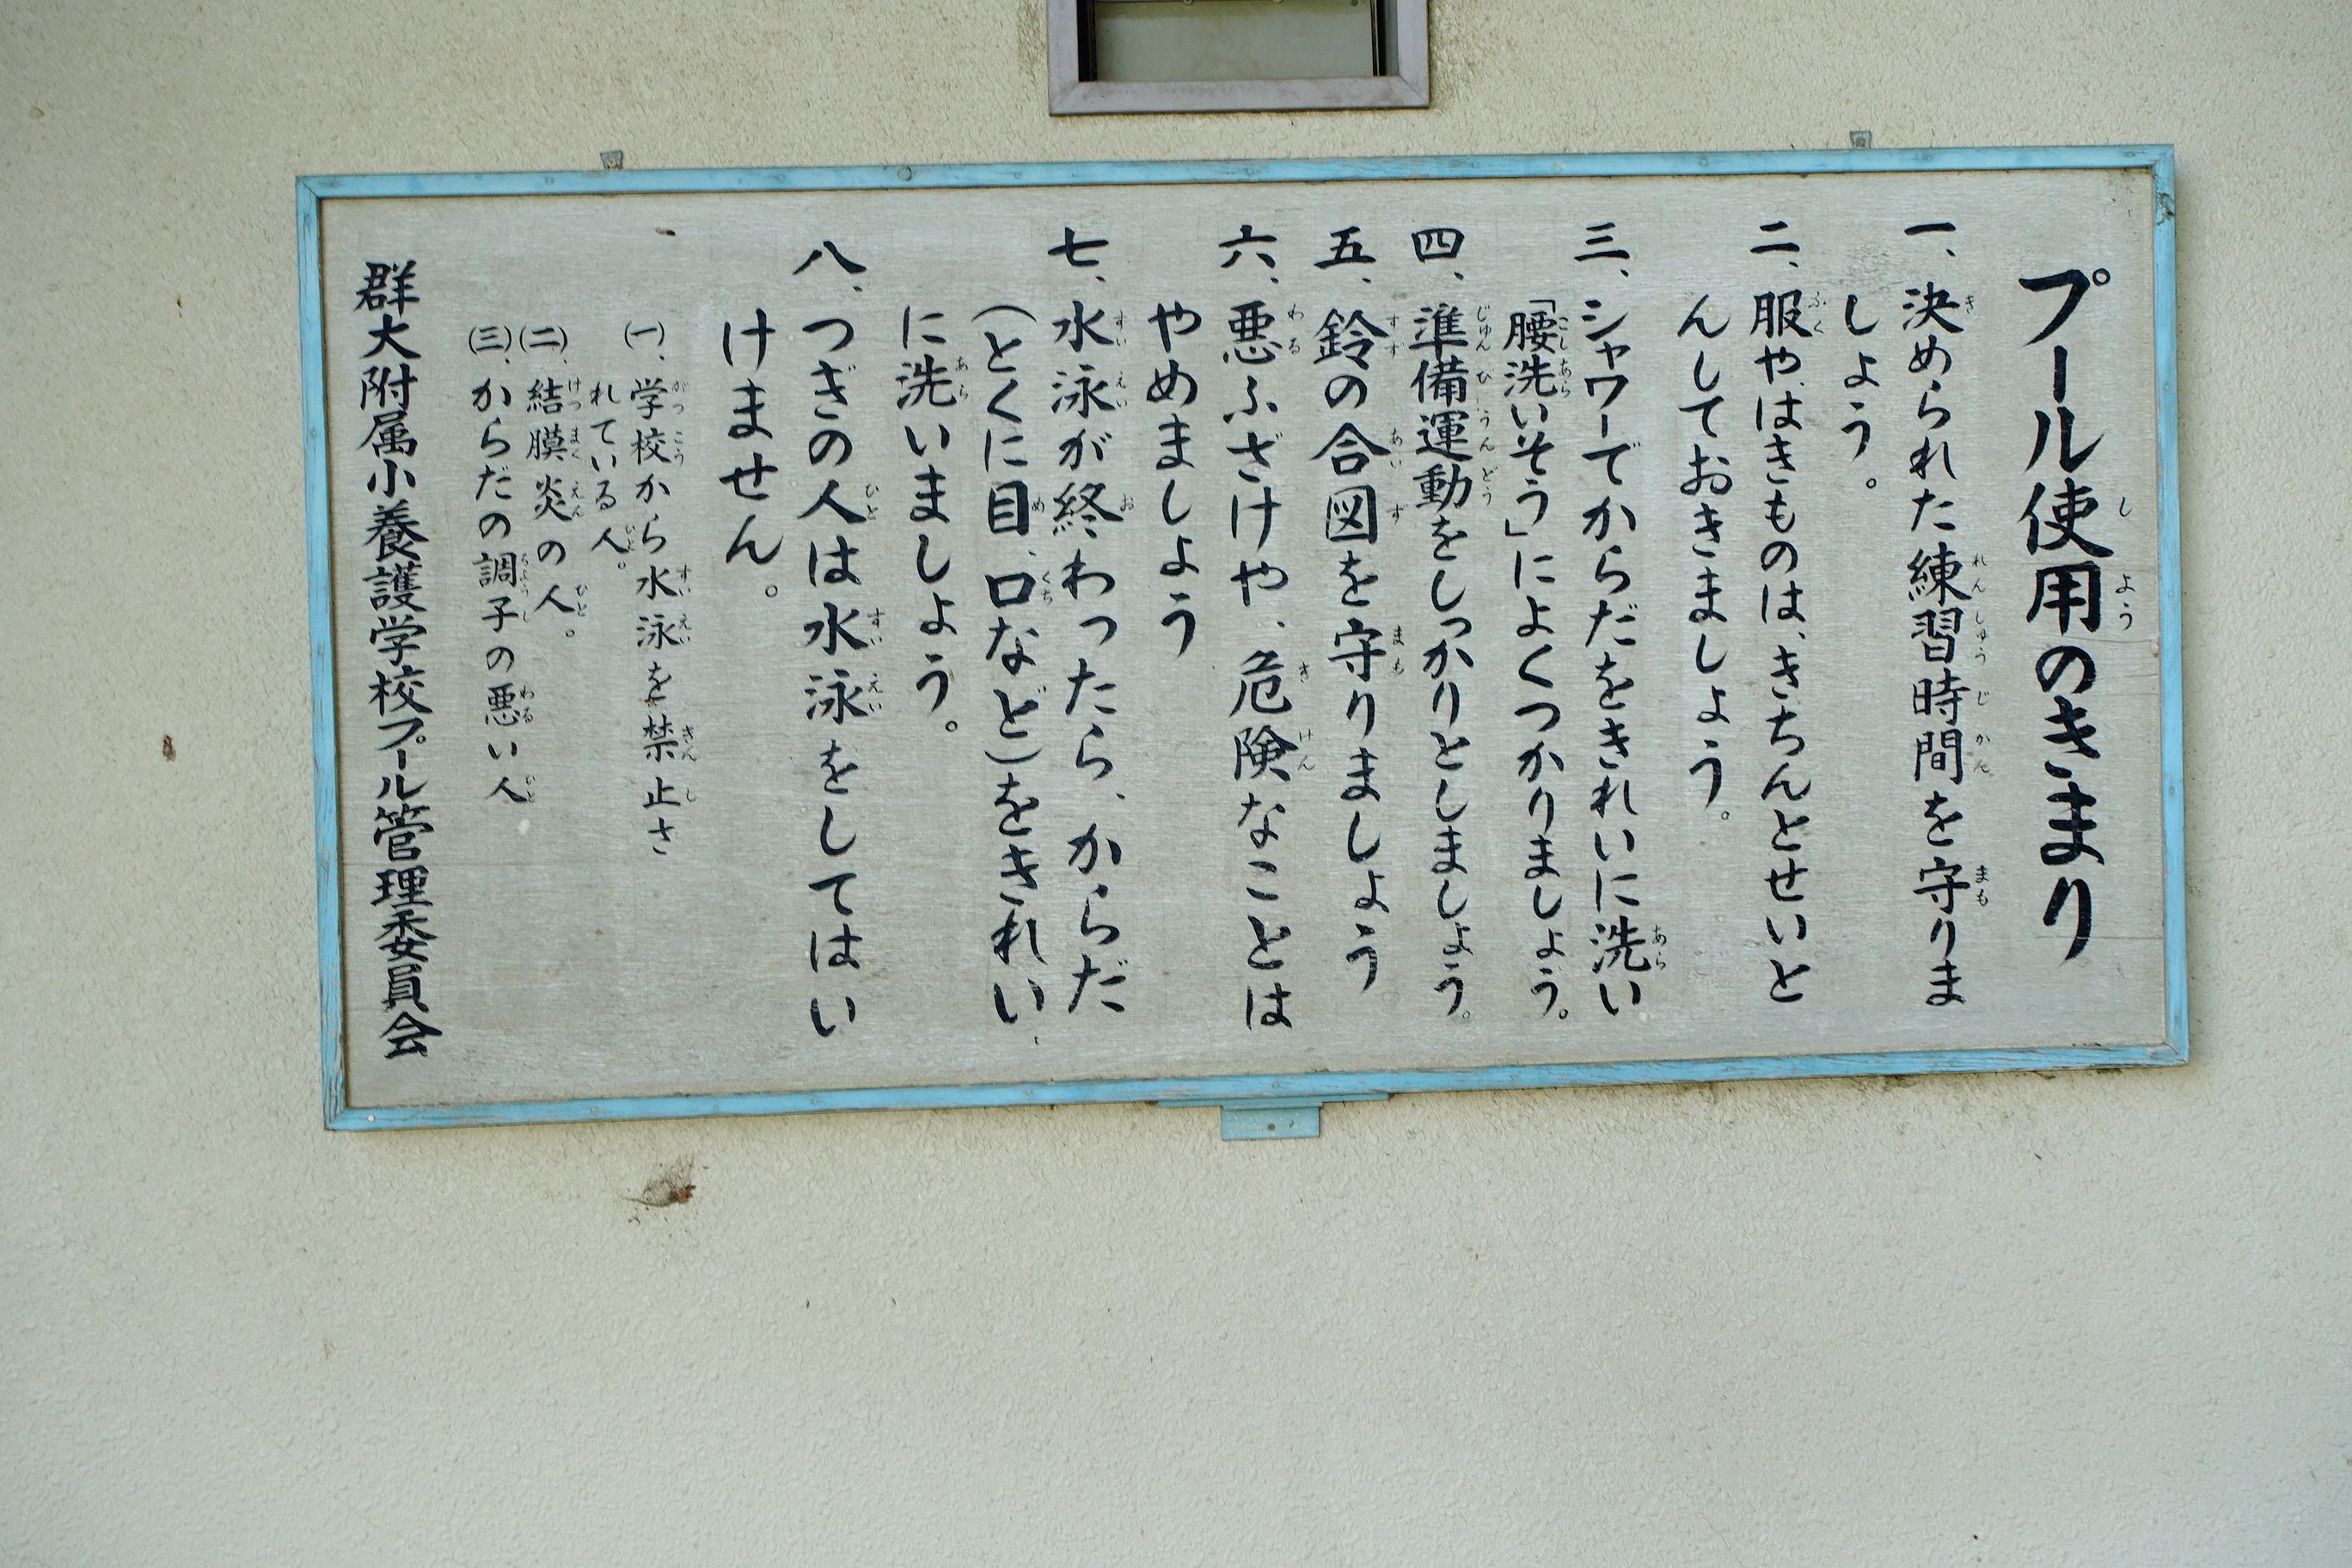 プール使用のきまり
一、決められた練習時間を守りま
しょう。
二、服や、はきものは、きちんとせいと
んしておきましょう。
三、シャワーでからだをきれいに洗い
「腰洗いそう」によくつかりましょう。
四、準備運動をしっかりとしましょう。
五、鈴の合図を守りましょう
六、悪ふざけや、危険なことは
やめましょう
七、水泳が終わったら、からだ
(とくに目、口など)をきれい
に洗いましょう。
八、つぎの人は水泳をしてはい
けません。
(一)、学校から水泳を禁止さ
れている人。
(二)、結膜炎の人。
(三)、からだの調子の悪い人
群大附属小養護学校プール管理委員会